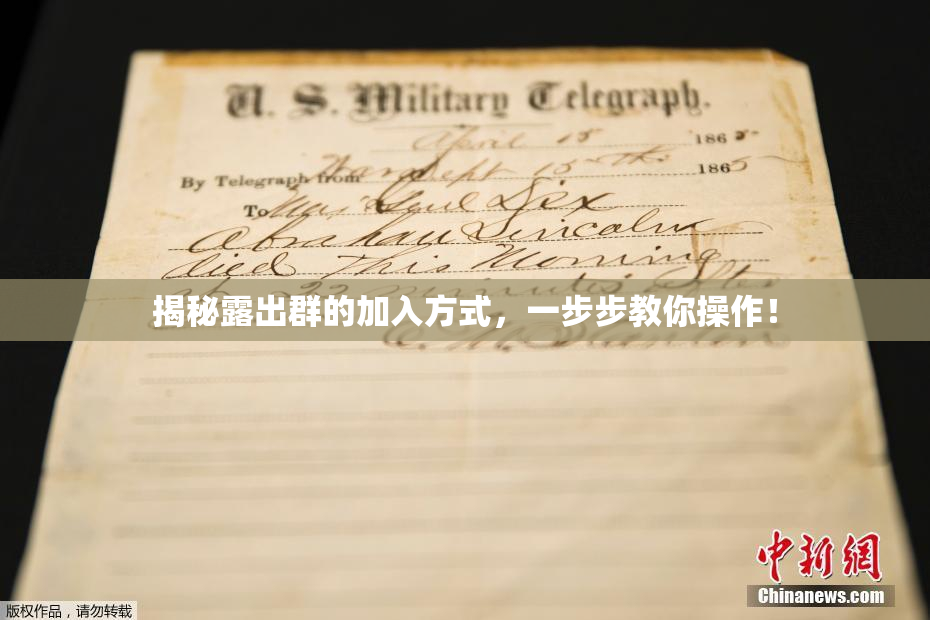 U. S. Military Telegraph.
April 15 1865
By Telegraph from War Dept 15th 1865
To Maj Genl Dix
Abraham Lincoln
died This Morning
at 22 minutes after
揭秘露出群的加入方式，一步步教你操作！
E. M. Stanton
中新网
Chinanews.com
版权作品，请勿转载